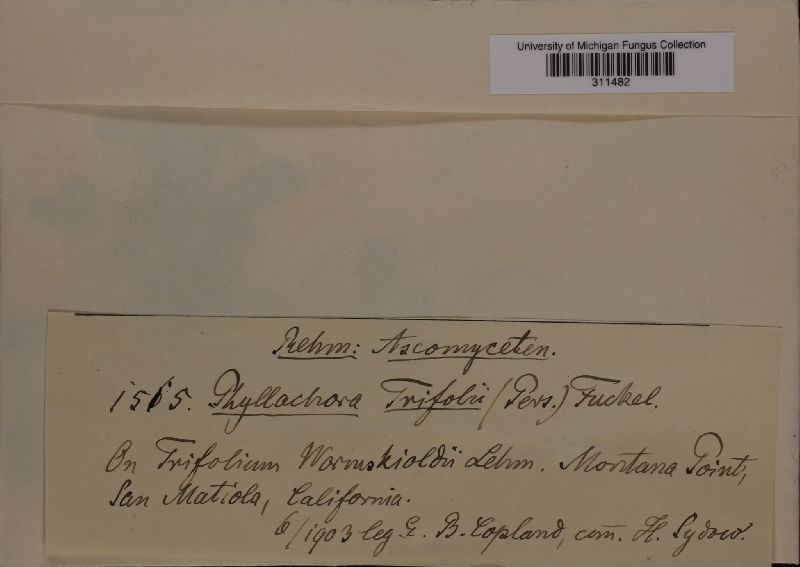 University of Michigan Fungus Collection
311482
Rehm: Ascomyceten.
1565. Phyllachora Trifolii (Pers.) Fuckel.
On Trifolium Wormskioldii Lehm. Montana Point,
San Matiola, California.
6/1903 leg. E. B. Copland, com̄. H. Sydow.